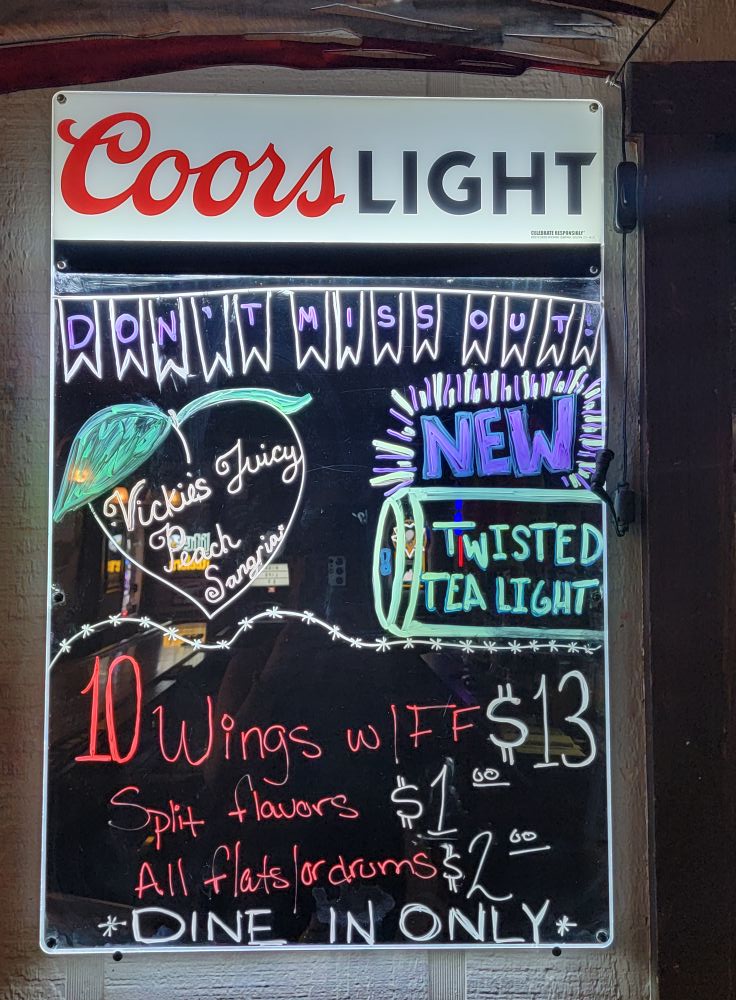 Coors LIGHT
CELEBRATE RESPONSIBLY
DON'T MISS OUT!
Vickie's Juicy
Peach
Sangria
NEW
TWISTED
TEA LIGHT
10 Wings w/FF $13
Split flavors $1.00
All flats/or drums $2.00
*DINE IN ONLY*